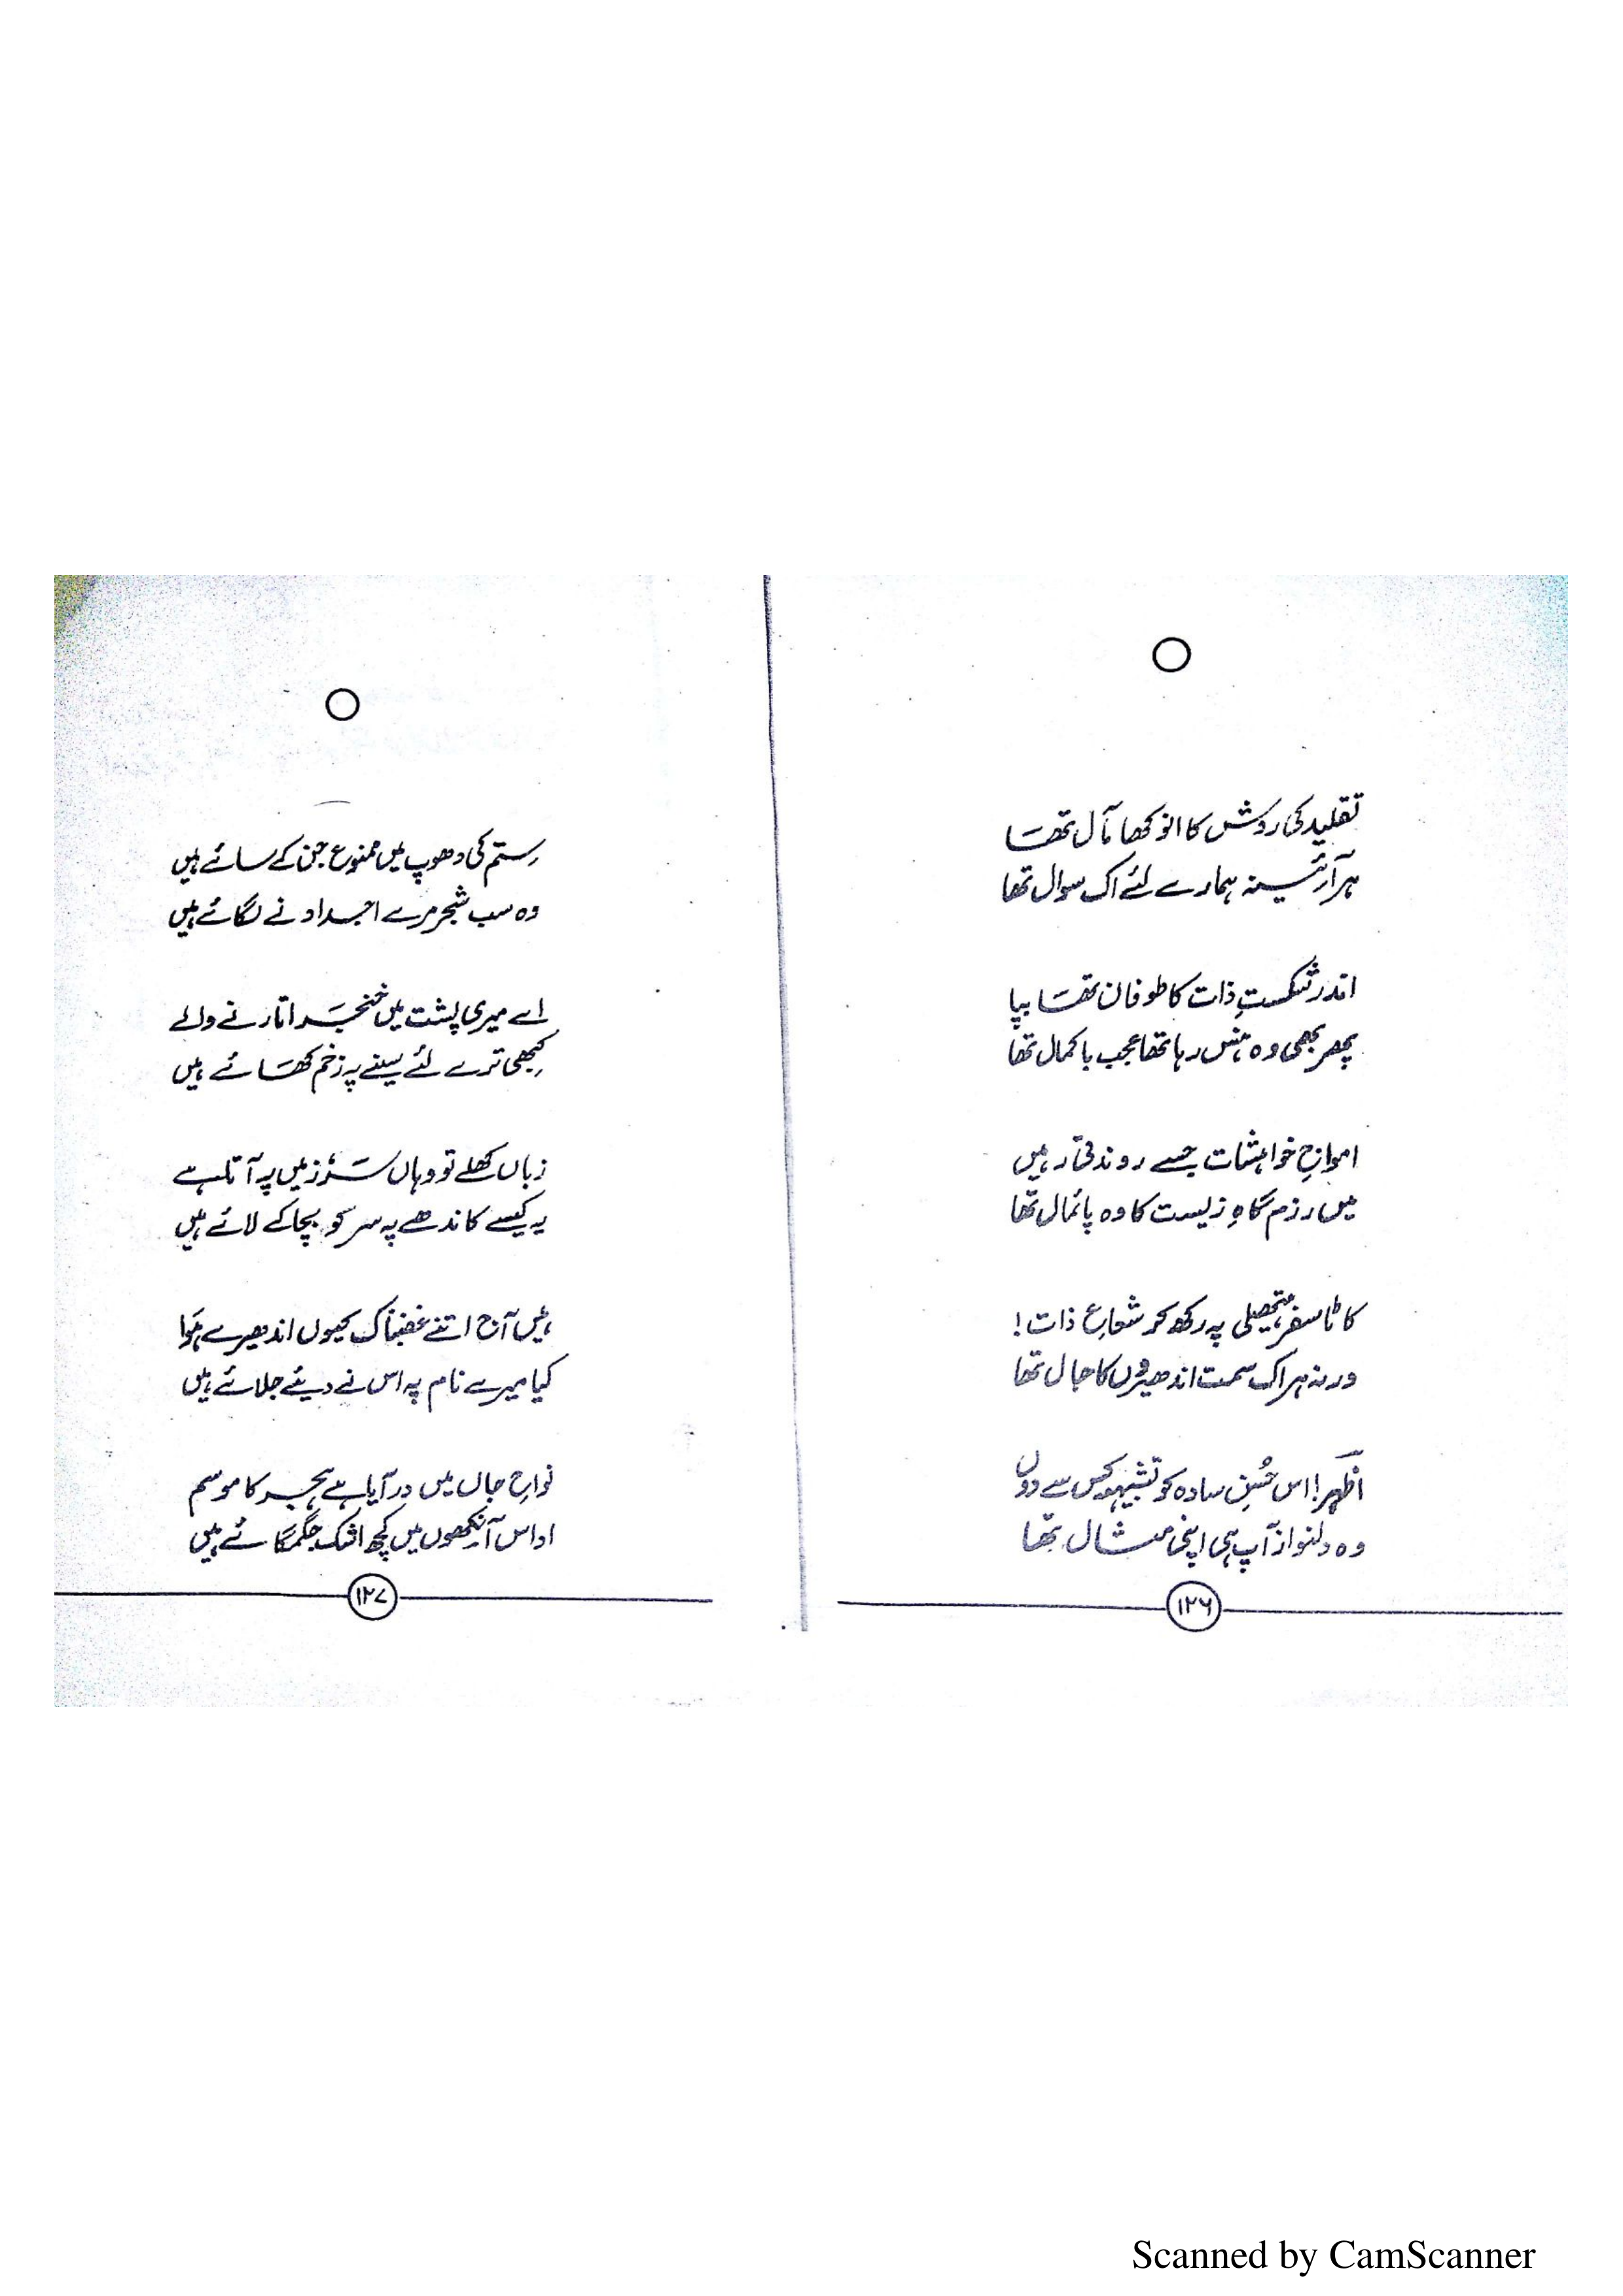 تقلید کی روش کا انوکھا مآل تھا
ہر آئینہ ہمارے لئے اک سوال تھا
اندر شکستِ ذات کا طوفان تھا بپا
پھر بھی وہ ہنس رہا تھا عجب باکمال تھا
امواجِ خواہشات جسے روندتی رہیں
میں رزم گاہِ زیست کا وہ پائمال تھا
کاٹا سفر ہتھیلی پہ رکھ کر شعاعِ ذات!
ورنہ ہر اک سمت اندھیروں کا جال تھا
اظہر! اس حُسنِ سادہ کو تشبیہہ کس سے دوں
وہ دلنواز آپ ہی اپنی مثال تھا
۱۲۶
ستم کی دھوپ میں ممنوع جن کے سائے ہیں
وہ سب شجر مرے اجداد نے لگائے ہیں
اے میری پشت میں خنجر اتارنے والے
کبھی ترے لئے سینے پہ زخم کھائے ہیں
زباں کھلے تو وہاں سر زمیں پہ آتا ہے
یہ کیسے کاندھے پہ سر کو بچا کے لائے ہیں
ہیں آج اتنے غضبناک کیوں اندھیرے ہوا
کیا میرے نام پہ اس نے دیئے جلائے ہیں
نواحِ جاں میں در آیا ہے ہجر کا موسم
اداس آنکھوں میں کچھ اشک جگمگائے ہیں
۱۲۷
Scanned by CamScanner